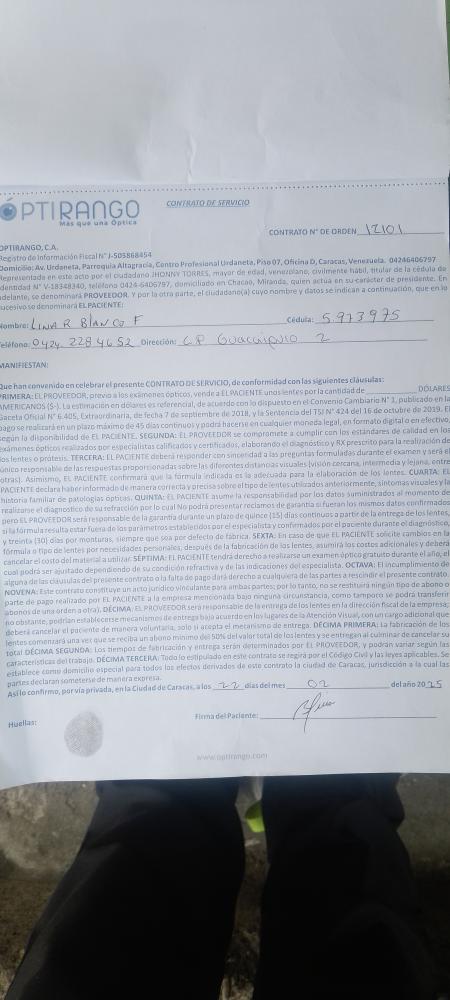 ÓPTIRANGO
Más que una Óptica
CONTRATO DE SERVICIO
CONTRATO N° DE ORDEN 12101
OPTIRANGO, C.A.
Registro de Información Fiscal N° J-505868454
Domicilio: Av. Urdaneta, Parroquia Altagracia, Centro Profesional Urdaneta, Piso 07, Oficina D, Caracas, Venezuela. 04246406797
Representada en este acto por el ciudadano JHONNY TORRES, mayor de edad, venezolano, civilmente hábil, titular de la cédula de
identidad N° V-18348340, teléfono 0424-6406797, domiciliado en Chacao, Miranda, quien actúa en su carácter de presidente. En
adelante, se denominará PROVEEDOR. Y por la otra parte, el ciudadano(a) cuyo nombre y datos se indican a continuación, que en lo
sucesivo se denominará EL PACIENTE:
Nombre: LINA R Blanco F Cédula: 5973975
Teléfono: 0424 2284652 Dirección: C.P Guaicaipuro 2
MANIFIESTAN:
Que han convenido en celebrar el presente CONTRATO DE SERVICIO, de conformidad con las siguientes cláusulas:
PRIMERA: EL PROVEEDOR, previo a los exámenes ópticos, vende a EL PACIENTE unos lentes por la cantidad de DÓLARES
AMERICANOS ($-). La estimación en dólares es referencial, de acuerdo con lo dispuesto en el Convenio Cambiario N° 1, publicado en la
Gaceta Oficial N° 6.405, Extraordinaria, de fecha 7 de septiembre de 2018, y la Sentencia del TSJ N° 424 del 16 de octubre de 2019. El
pago se realizará en un plazo máximo de 45 días continuos y podrá hacerse en cualquier moneda legal, en formato digital o en efectivo,
según la disponibilidad de EL PACIENTE. SEGUNDA: EL PROVEEDOR se compromete a cumplir con los estándares de calidad en los
exámenes ópticos realizados por especialistas calificados y certificados, elaborando el diagnóstico y RX prescrito para la realización de
los lentes o prótesis. TERCERA: EL PACIENTE deberá responder con sinceridad a las preguntas formuladas durante el examen y será el
único responsable de las respuestas proporcionadas sobre las diferentes distancias visuales (visión cercana, intermedia y lejana, entre
otras). Asimismo, EL PACIENTE confirmará que la fórmula indicada es la adecuada para la elaboración de los lentes. CUARTA: EL
PACIENTE declara haber informado de manera correcta y precisa sobre el tipo de lentes utilizados anteriormente, síntomas visuales y la
historia familiar de patologías ópticas. QUINTA: EL PACIENTE asume la responsabilidad por los datos suministrados al momento de
realizarse el diagnóstico de su refracción por lo cual No podrá presentar reclamos de garantía si fueran los mismos datos confirmados
pero EL PROVEEDOR será responsable de la garantía durante un plazo de quince (15) días continuos a partir de la entrega de los lentes,
si la fórmula resulta estar fuera de los parámetros establecidos por el especialista y confirmados por el paciente durante el diagnóstico,
y treinta (30) días por monturas, siempre que sea por defecto de fábrica. SEXTA: En caso de que EL PACIENTE solicite cambios en la
fórmula o tipo de lentes por necesidades personales, después de la fabricación de los lentes, asumirá los costos adicionales y deberá
cancelar el costo del material a utilizar. SÉPTIMA: EL PACIENTE tendrá derecho a realizarse un examen óptico gratuito durante el año, el
cual podrá ser ajustado dependiendo de su condición refractiva y de las indicaciones del especialista. OCTAVA: El incumplimiento de
alguna de las cláusulas del presente contrato o la falta de pago dará derecho a cualquiera de las partes a rescindir el presente contrato.
NOVENA: Este contrato constituye un acto jurídico vinculante para ambas partes; por lo tanto, no se restituirá ningún tipo de abono o
parte de pago realizado por EL PACIENTE a la empresa mencionada bajo ninguna circunstancia, como tampoco se podrá transferir
abonos de una orden a otra). DÉCIMA: EL PROVEEDOR será responsable de la entrega de los lentes en la dirección fiscal de la empresa;
no obstante, podrían establecerse mecanismos de entrega bajo acuerdo en los lugares de la Atención Visual, con un cargo adicional que
deberá cancelar el paciente de manera voluntaria, solo si acepta el mecanismo de entrega. DÉCIMA PRIMERA: La fabricación de los
lentes comenzará una vez que se reciba un abono mínimo del 50% del valor total de los lentes y se entregan al culminar de cancelar su
total DÉCIMA SEGUNDA: Los tiempos de fabricación y entrega serán determinados por EL PROVEEDOR, y podrán variar según las
características del trabajo. DÉCIMA TERCERA: Todo lo estipulado en este contrato se regirá por el Código Civil y las leyes aplicables. Se
establece como domicilio especial para todos los efectos derivados de este contrato la ciudad de Caracas, jurisdicción a la cual las
partes declaran someterse de manera expresa.
Así lo confirmo, por vía privada, en la Ciudad de Caracas, a los 22 días del mes 02 del año 2025
Firma del Paciente:
Huellas:
www.optirango.com